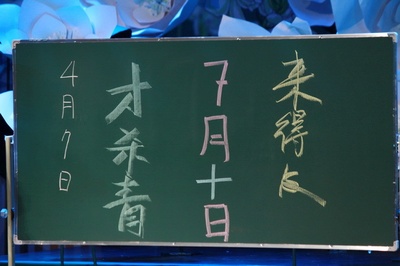 来得及
7月十日
才杀青
4月7日